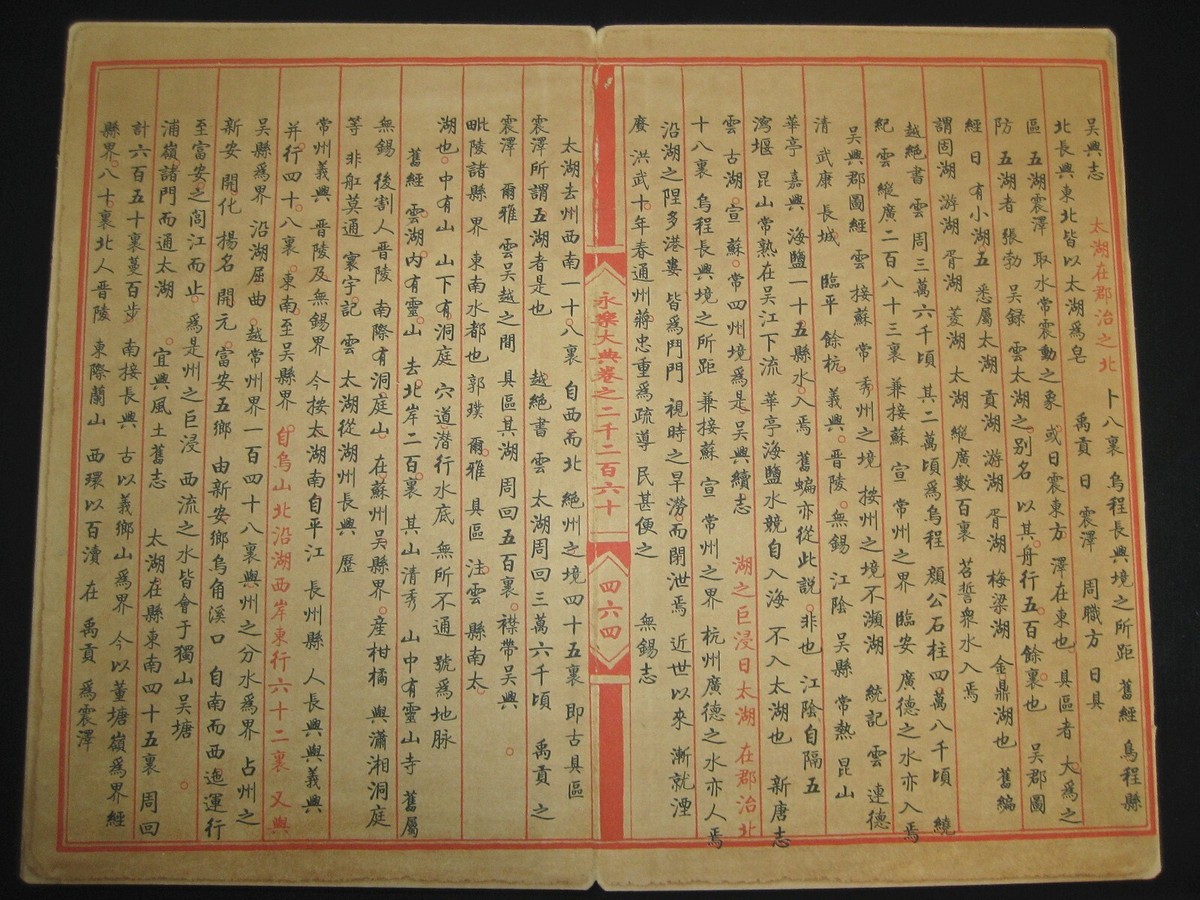 吳興志 太湖在郡治之北 卜八裏 烏程長興境之所距 舊經 烏程縣
北長興東北皆以太湖爲皂 禹貢 日 震澤 周職方 日具
區 五湖震澤 取水常震動之象 或日震東方 澤在東也 具區者 大爲之
防 五湖者 張勃 吳録 雲太湖之別名 以其舟行五百餘裏也 吳郡圖
經 日 有小湖五 悉屬太湖 貢湖 游湖 胥湖 梅梁湖 金鼎湖也 舊編
謂固湖 游湖 胥湖 菱湖 太湖 縱廣數百裏 苕誓衆水入焉
越絶書雲 周三萬六千頃 其二萬頃爲烏程 顔公石柱四萬八千頃 繞
紀雲 縱廣二百八十三裏 兼接蘇 宣 常州之界 臨安 廣德之水亦入焉
吳興郡圖經雲 接蘇 常 秀州之境 按州之境不瀕湖 統記 雲 連德
清 武康 長城 臨平 餘杭 義興 晋陵 無錫 江陰 吳縣 常熱 昆山
華亭 嘉興 海鹽一十五縣水入焉 舊蝙亦從此説 非也 江陰自隔五
瀉堰 昆山常熟在吳江下流 華亭海鹽水競自入海 不入太湖也 新唐志
雲 古湖 宣 蘇 常四州境爲是 吳興續志 湖之巨浸日太湖 在郡治北
十八裏 烏程長興境之所距 兼接蘇 宣 常州之界 杭州廣德之水亦人焉
沿湖之陧多港婁 皆爲鬥門 視時之旱澇而閉泄焉 近世以來 漸就湮
廢 洪武十年春通州蔣忠重爲疏導 民甚便之 無錫志
永樂大典卷之二千二百六十 四六四
太湖去州西南一十八裏 自西而北 絶州之境四十五裏 即古具區
震澤所謂五湖者是也 越絶書 雲 太湖周回三萬六千頃 禹貢 之
震澤 爾雅 雲吳越之間 具區其湖 周回五百裏 襟帶吳興
毗陵諸縣 界 東南水都也 郭璞 爾雅 具區 注雲 縣南太
湖也 中有山 山下有洞庭 穴道潜行水底 無所不通 號爲地脉
舊經 雲湖内有靈山 去北岸二百裏 其山清秀 山中有靈山寺 舊屬
無錫 後割人晋陵 南際有洞庭山 在蘇州吳縣界 産柑橘 與瀟湘洞庭
等 非舡莫通 寰宇記 雲 太湖從湖州長興 歷
常州義興 晋陵及無錫界 今按太湖南自平江 長州縣 人長興與義興
并行四十八裏 東南至吳縣界 自烏山北沿湖西岸東行六十二裏 又與
吳縣爲界 沿湖屈曲 越常州界一百四十八裏與州之分水爲界 占州之
新安 開化 揚名 開元 富安五鄉 由新安鄉烏角溪口 自南而西迤運行
至富安之閭江而止 爲是州之巨浸 西流之水皆會于獨山吳塘
浦嶺諸門而通太湖 宜興風土舊志 太湖在縣東南四十五裏 周回
計六百五十裏蔓百步 南接長興 古以義鄉山爲界 今以董塘嶺爲界 經
縣界八十裏北人晋陵 東際蘭山 西環以百瀆 在 禹貢 爲震澤